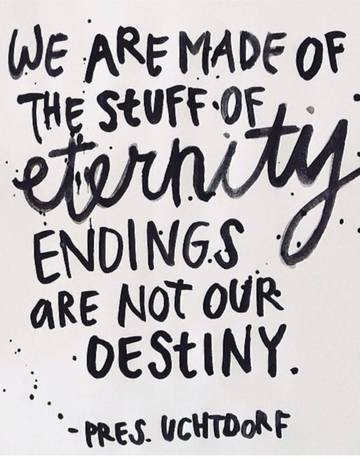 WE ARE MADE OF
THE StUFF OF
eternity
ENDINGS
aRE NOT OUR
DEStINY.
-PRES. UCHTDORF